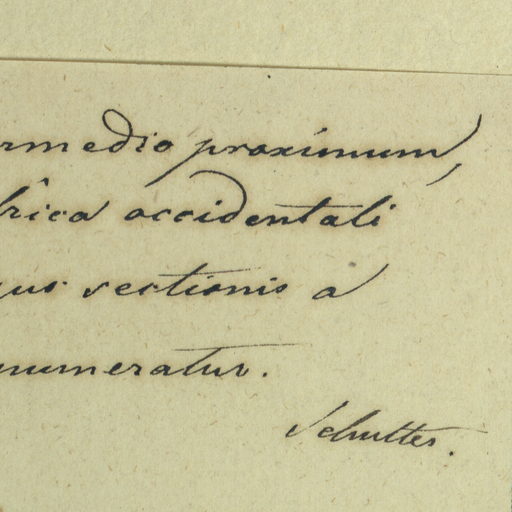 rmedio proximum,
frica occidentali
us sectionis a
numeratur.
Schultes.